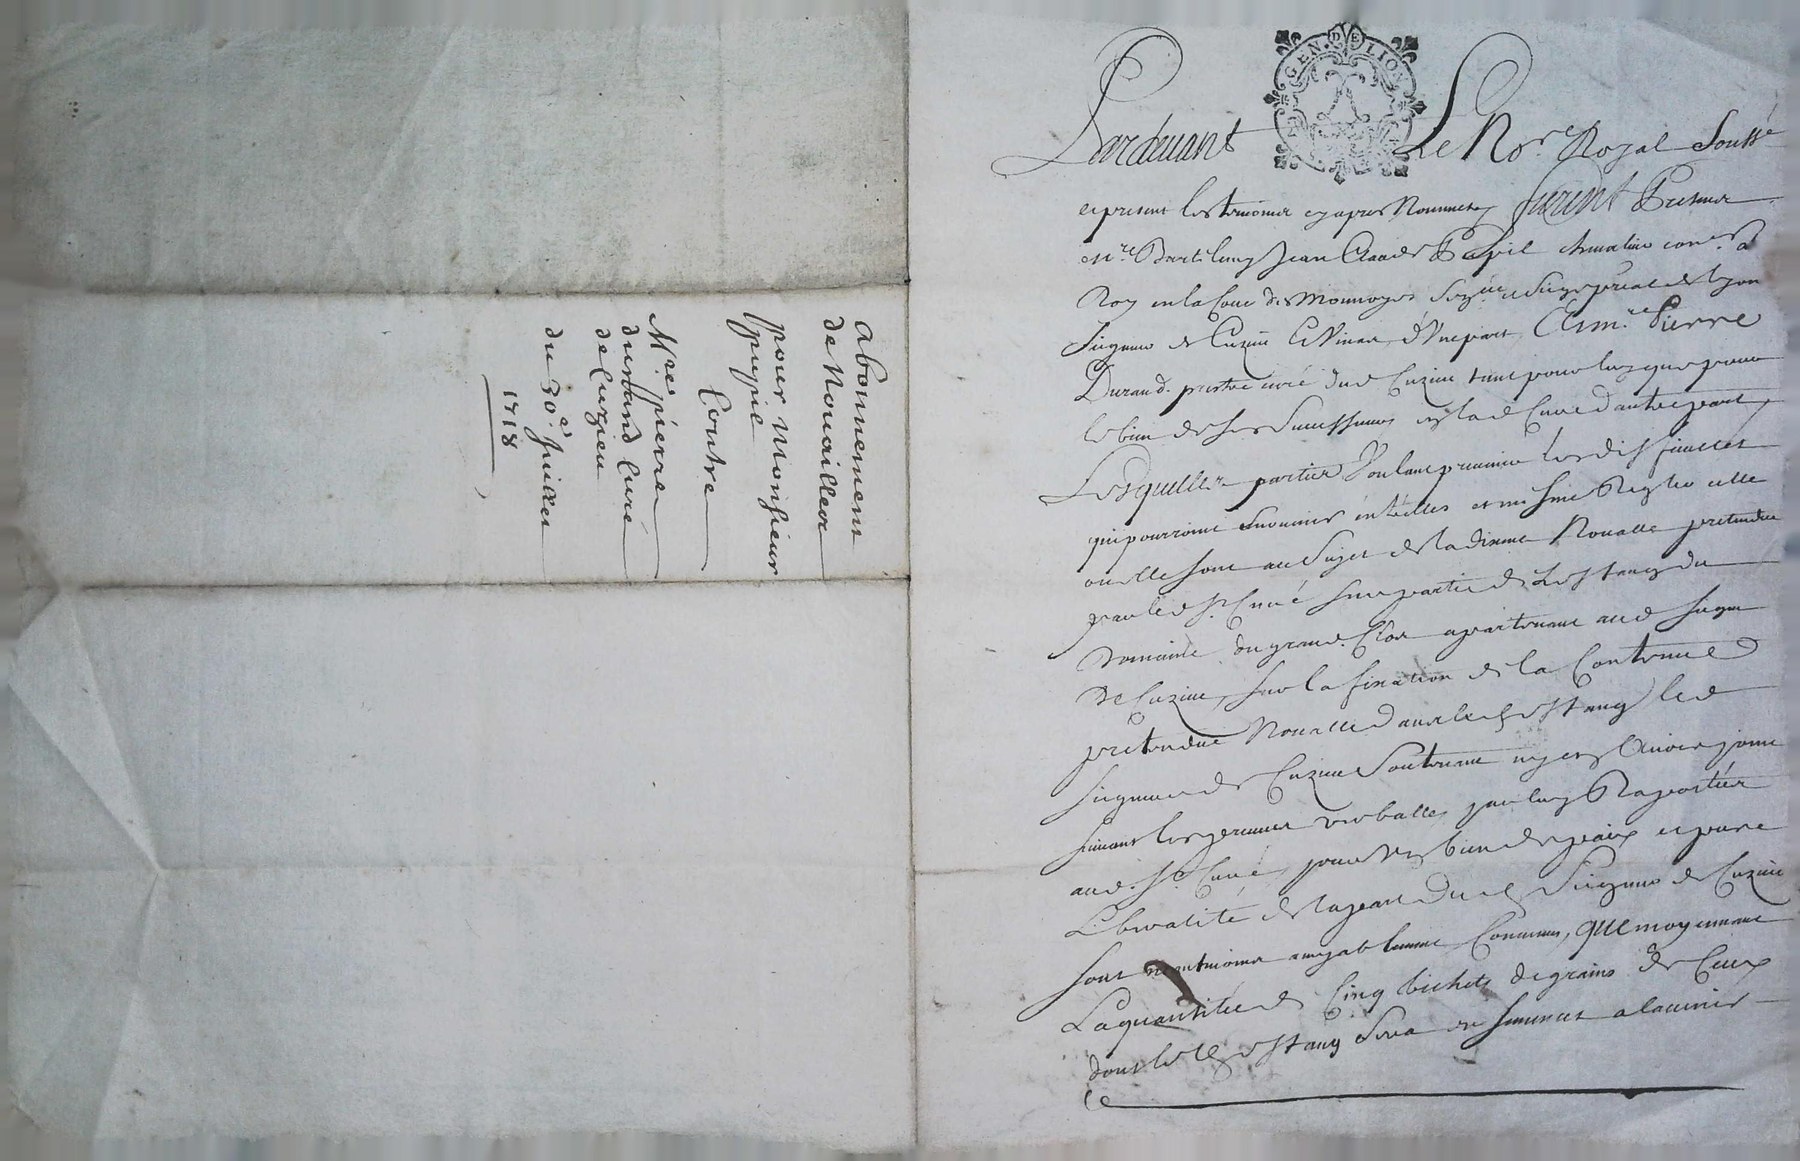 abonnement
de Nouailles
pour Monsieur
pupil
Contre
Mre pierre
durand Curé
de Cuzieu
du 30e Juillet
1718
GEN DE LION
Pardeuant Le Nore Royal Soussé
et present les temoins cy apres Nommes furent Presens
Mre Barthelemy Jean Claude Pupil conser du
Roy en la Cour des Monnoyes Senéé et Siege pr de Lyon
Seigneur de Cuzieu d'Vne part, Et mre Pierre
Durand prestre curé dud Cuzieu tant pour luy que pour
les Successeurs en lad Cure d'autre part,
Lesquelles parties Voulant preuenir les dissicultes
qui pourroient suruenir entr'elles et mesme Regler celle
ou elle sont au Sujet de la disme Noualle pretendue
par led Sr Curé sur partie de Lestang du
Domaine du grand Clos apartenant aud Seigr
De Cuzieu, sur la fixation de la Contenue
pretendue Noualle dans led estang led
Seigneur de Cuzieu Soutenant
suiuant les verballes par luy Raportées
aud. Sr Curé, pour le bien de paix et pure
Liberalité de la part dud Seigneur de Cuzieu
sont neantmoins amyablement Conuenus, que moyennant
La quantité de Cinq bichets de grains de Ceux
dont led estang Sera en semence a lauenir
Ce